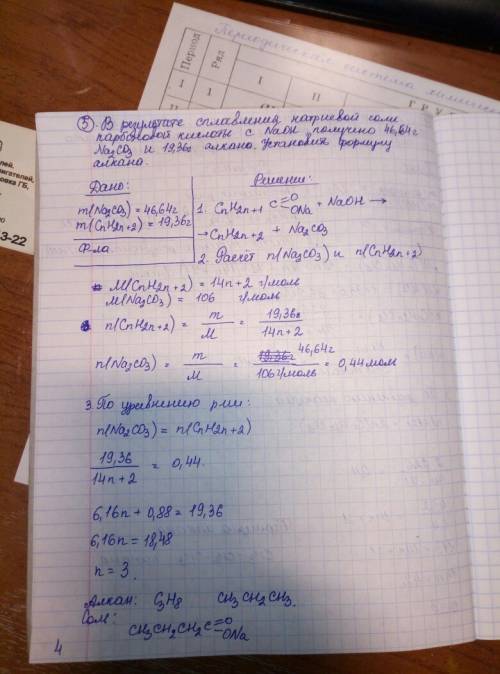 Периодическая система
Период
Ряд
I
II
ГРУ
I
1
II
3-22
ⓢ5. В результате сплавления натриевой соли
карбоновой кислоты с NaOH получено 46,64г
Na2CO3 и 19,36г алкана. Установите формулу
алкана.
Дано:
m(Na2CO3) = 46,64г
m(CnH2n+2) = 19,36г
Ф-ла
Решение:
1. CnH2n+1 C=O ONa + NaOH →
→ CnH2n+2 + Na2CO3
2. Расчёт n(Na2CO3) и n(CnH2n+2)
M(CnH2n+2) = 14n+2 г/моль
M(Na2CO3) = 106 г/моль
n(CnH2n+2) = m/M = 19,36г/14n+2
n(Na2CO3) = m/M = 46,64г/106г/моль = 0,44моль
3. По уравнению р-ии:
n(Na2CO3) = n(CnH2n+2)
19,36/14n+2 = 0,44.
6,16n + 0,88 = 19,36
6,16n = 18,48
n = 3.
Алкан: C3H8 CH3CH2CH3.
Соль:
CH3CH2CH2C=O ONa
4